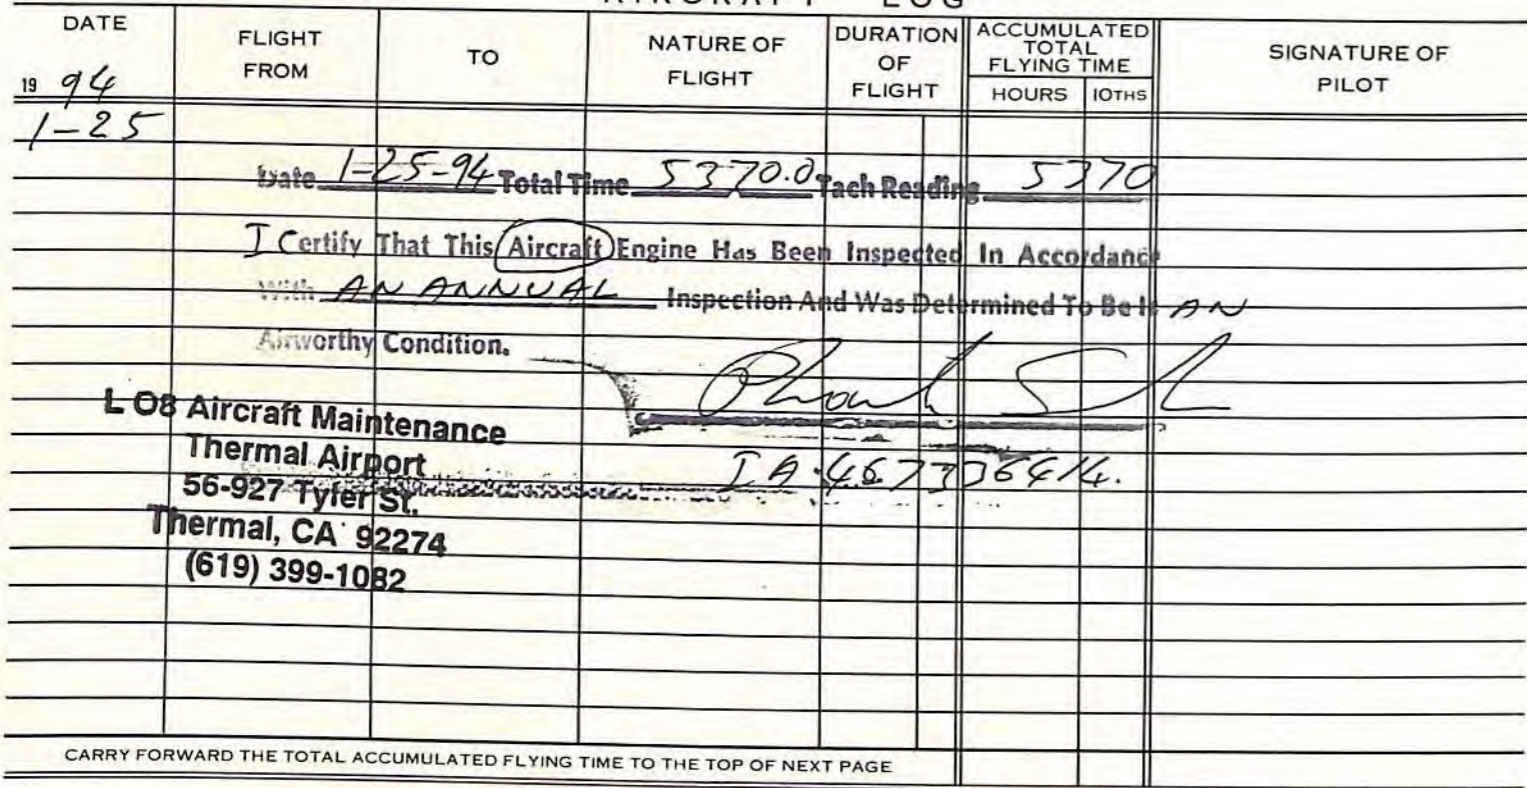 AIRCRAFT LOG
DATE
19 94
FLIGHT FROM
TO
NATURE OF FLIGHT
DURATION OF FLIGHT
ACCUMULATED TOTAL FLYING TIME
HOURS
10THS
SIGNATURE OF PILOT
1-25
Date 1-25-94 Total Time 5370.0 Tach Reading 5370
I Certify That This Aircraft Engine Has Been Inspected In Accordance
With AN ANNUAL Inspection And Was Determined To Be In AN
Airworthy Condition.
L O8 Aircraft Maintenance
Thermal Airport
56-927 Tyler St.
Thermal, CA 92274
(619) 399-1082
IA
CARRY FORWARD THE TOTAL ACCUMULATED FLYING TIME TO THE TOP OF NEXT PAGE